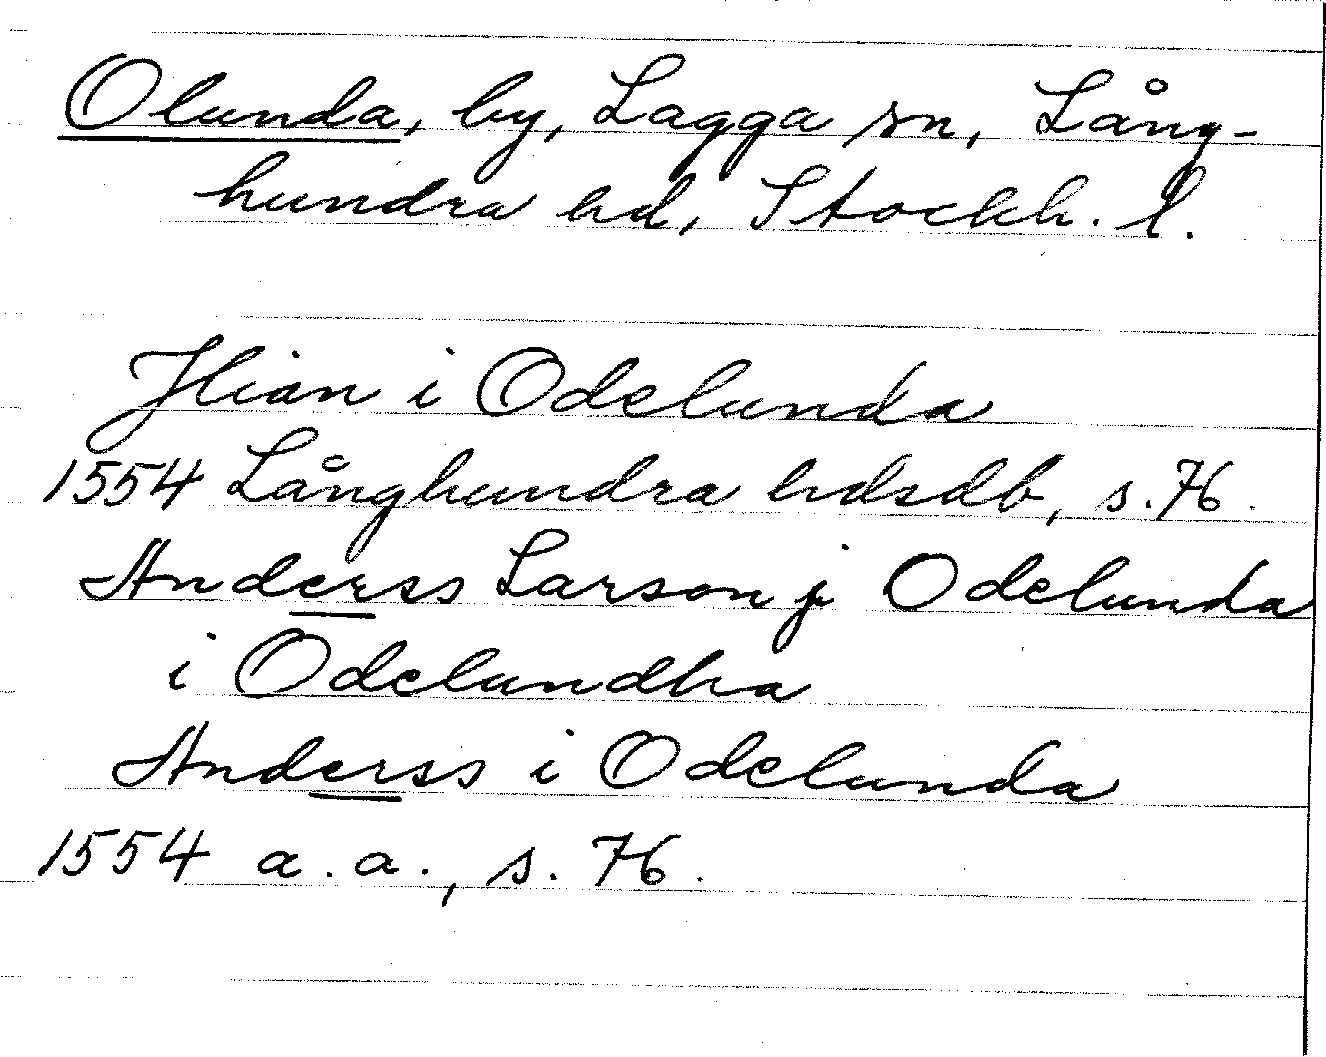 Olunda, by, Lagga sn, Lång-
hundra hd, Stockh. l.
Jlian i Odelunda
1554 Långhundra hdsdb, s. 76.
Anderss Larson j Odelunda
i Odelundha
Anderss i Odelunda
1554 a. a., s. 76.